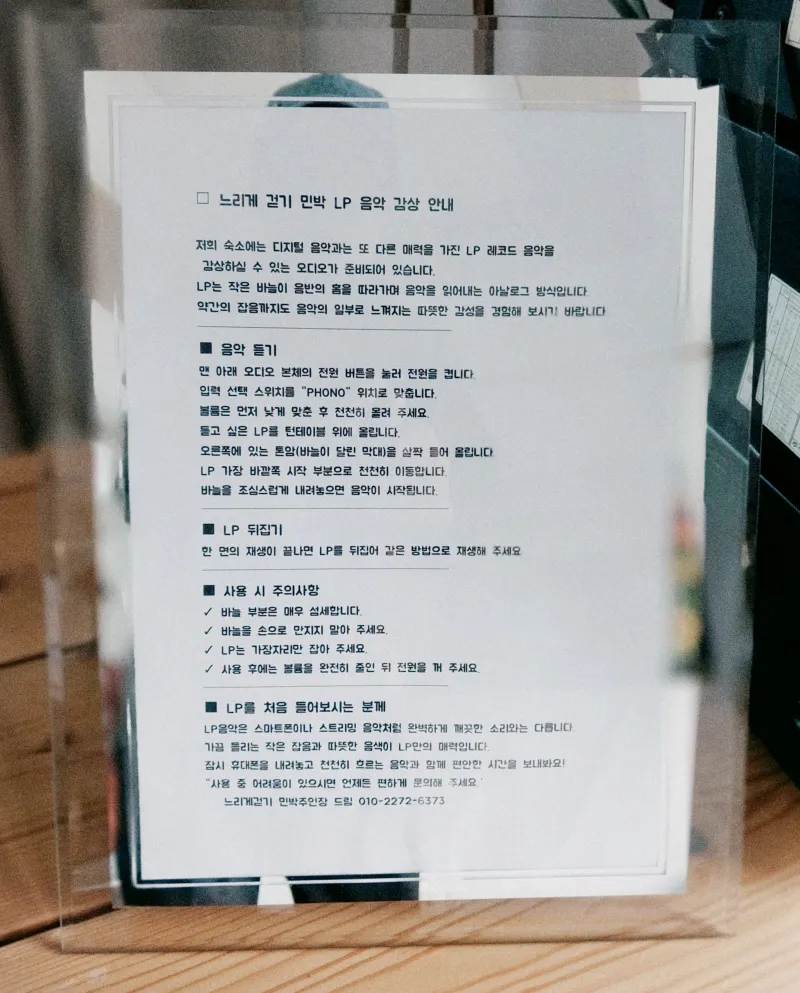 □ 느리게 걷기 민박 LP 음악 감상 안내
저희 숙소에는 디지털 음악과는 또 다른 매력을 가진 LP 레코드 음악을
감상하실 수 있는 오디오가 준비되어 있습니다.
LP는 작은 바늘이 음반의 홈을 따라가며 음악을 읽어내는 아날로그 방식입니다.
약간의 잡음까지도 음악의 일부로 느껴지는 따뜻한 감성을 경험해 보시기 바랍니다
■ 음악 듣기
맨 아래 오디오 본체의 전원 버튼을 눌러 전원을 켭니다.
입력 선택 스위치를 "PHONO" 위치로 맞춥니다.
볼륨은 먼저 낮게 맞춘 후 천천히 올려 주세요.
듣고 싶은 LP를 턴테이블 위에 올립니다.
오른쪽에 있는 톤암(바늘이 달린 막대)을 살짝 들어 올립니다
LP 가장 바깥쪽 시작 부분으로 천천히 이동합니다.
바늘을 조심스럽게 내려놓으면 음악이 시작됩니다.
■ LP 뒤집기
한 면의 재생이 끝나면 LP를 뒤집어 같은 방법으로 재생해 주세요
■ 사용 시 주의사항
✓ 바늘 부분은 매우 섬세합니다.
✓ 바늘을 손으로 만지지 말아 주세요.
✓ LP는 가장자리만 잡아 주세요.
✓ 사용 후에는 볼륨을 완전히 줄인 뒤 전원을 꺼 주세요.
■ LP를 처음 들어보시는 분께
LP음악은 스마트폰이나 스트리밍 음악처럼 완벽하게 깨끗한 소리와는 다릅니다.
가끔 들리는 작은 잡음과 따뜻한 음색이 LP만의 매력입니다.
잠시 휴대폰을 내려놓고 천천히 흐르는 음악과 함께 편안한 시간을 보내봐요!
"사용 중 어려움이 있으시면 언제든 편하게 문의해 주세요."
느리게걷기 민박주인장 드림 010-2272-6373